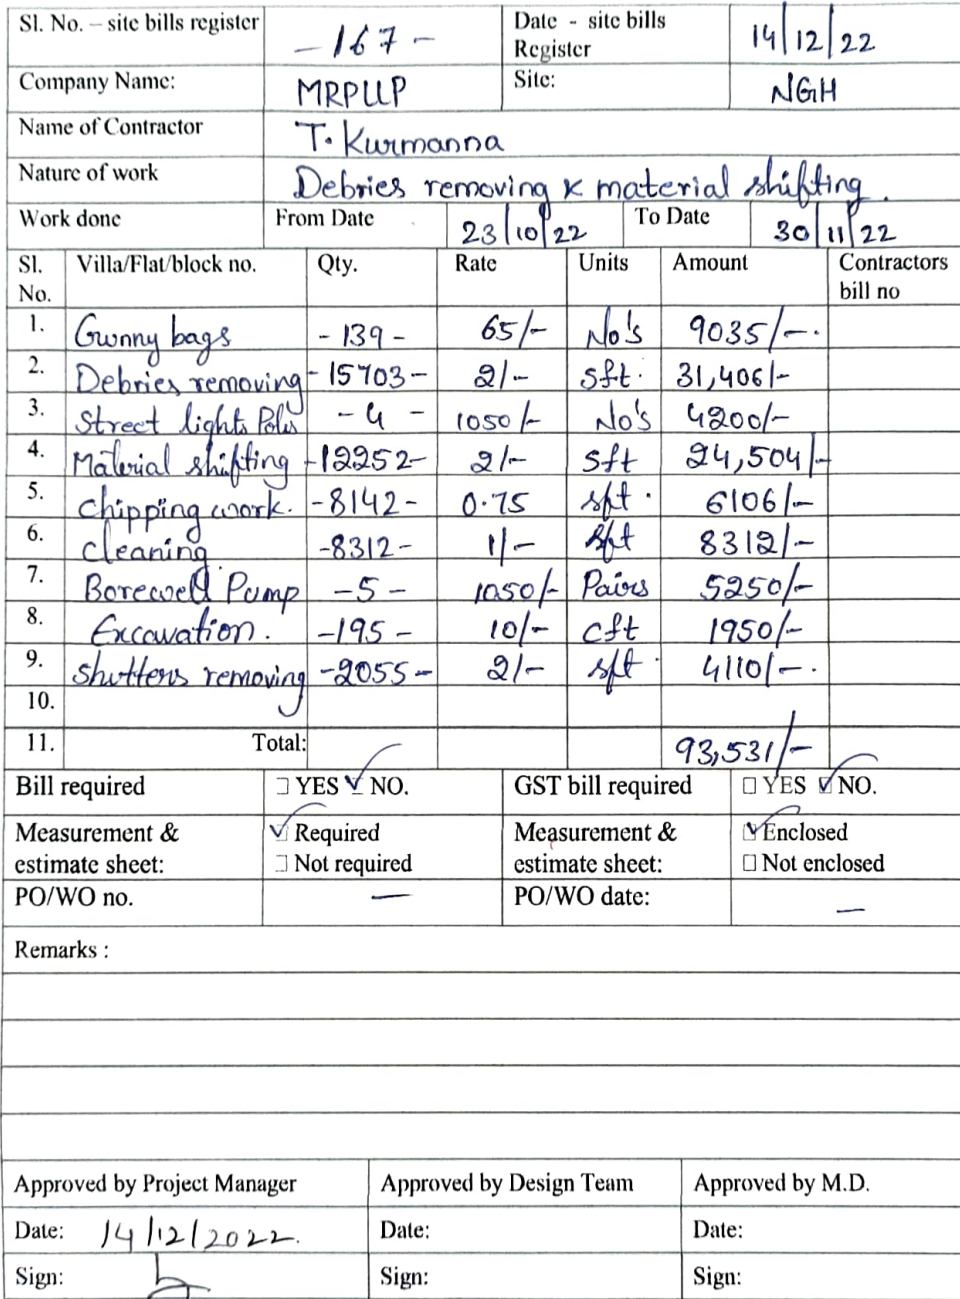 Sl. No. – site bills register -167- Date - site bills Register 14/12/22
Company Name: MRPLLP Site: NGH
Name of Contractor T. Kurmanna
Nature of work Debries removing & material shifting.
Work done From Date 23/10/22 To Date 30/11/22
Sl. No. Villa/Flat/block no. Qty. Rate Units Amount Contractors bill no
1. Gunny bags -139- 65/- No's 9035/-.
2. Debries removing -15703- 2/- Sft. 31,406/-
3. Street lights Poles -4- 1050/- No's 4200/-
4. Material shifting -12252- 2/- Sft 24,504/-
5. Chipping work. -8142- 0.75 sft. 6106/-
6. cleaning -8312- 1/- sft 8312/-
7. Borewell Pump -5- 1050/- Pairs 5250/-
8. Excavation. -195- 10/- cft 1950/-
9. Shutters removing -2055- 2/- sft. 4110/-.
10.
11. Total: 93,531/-
Bill required YES NO. GST bill required YES NO.
Measurement & estimate sheet: Required Measurement & estimate sheet: Enclosed
Not required Not enclosed
PO/WO no. — PO/WO date: —
Remarks :
Approved by Project Manager Approved by Design Team Approved by M.D.
Date: 14/12/2022. Date: Date:
Sign: Sign: Sign: